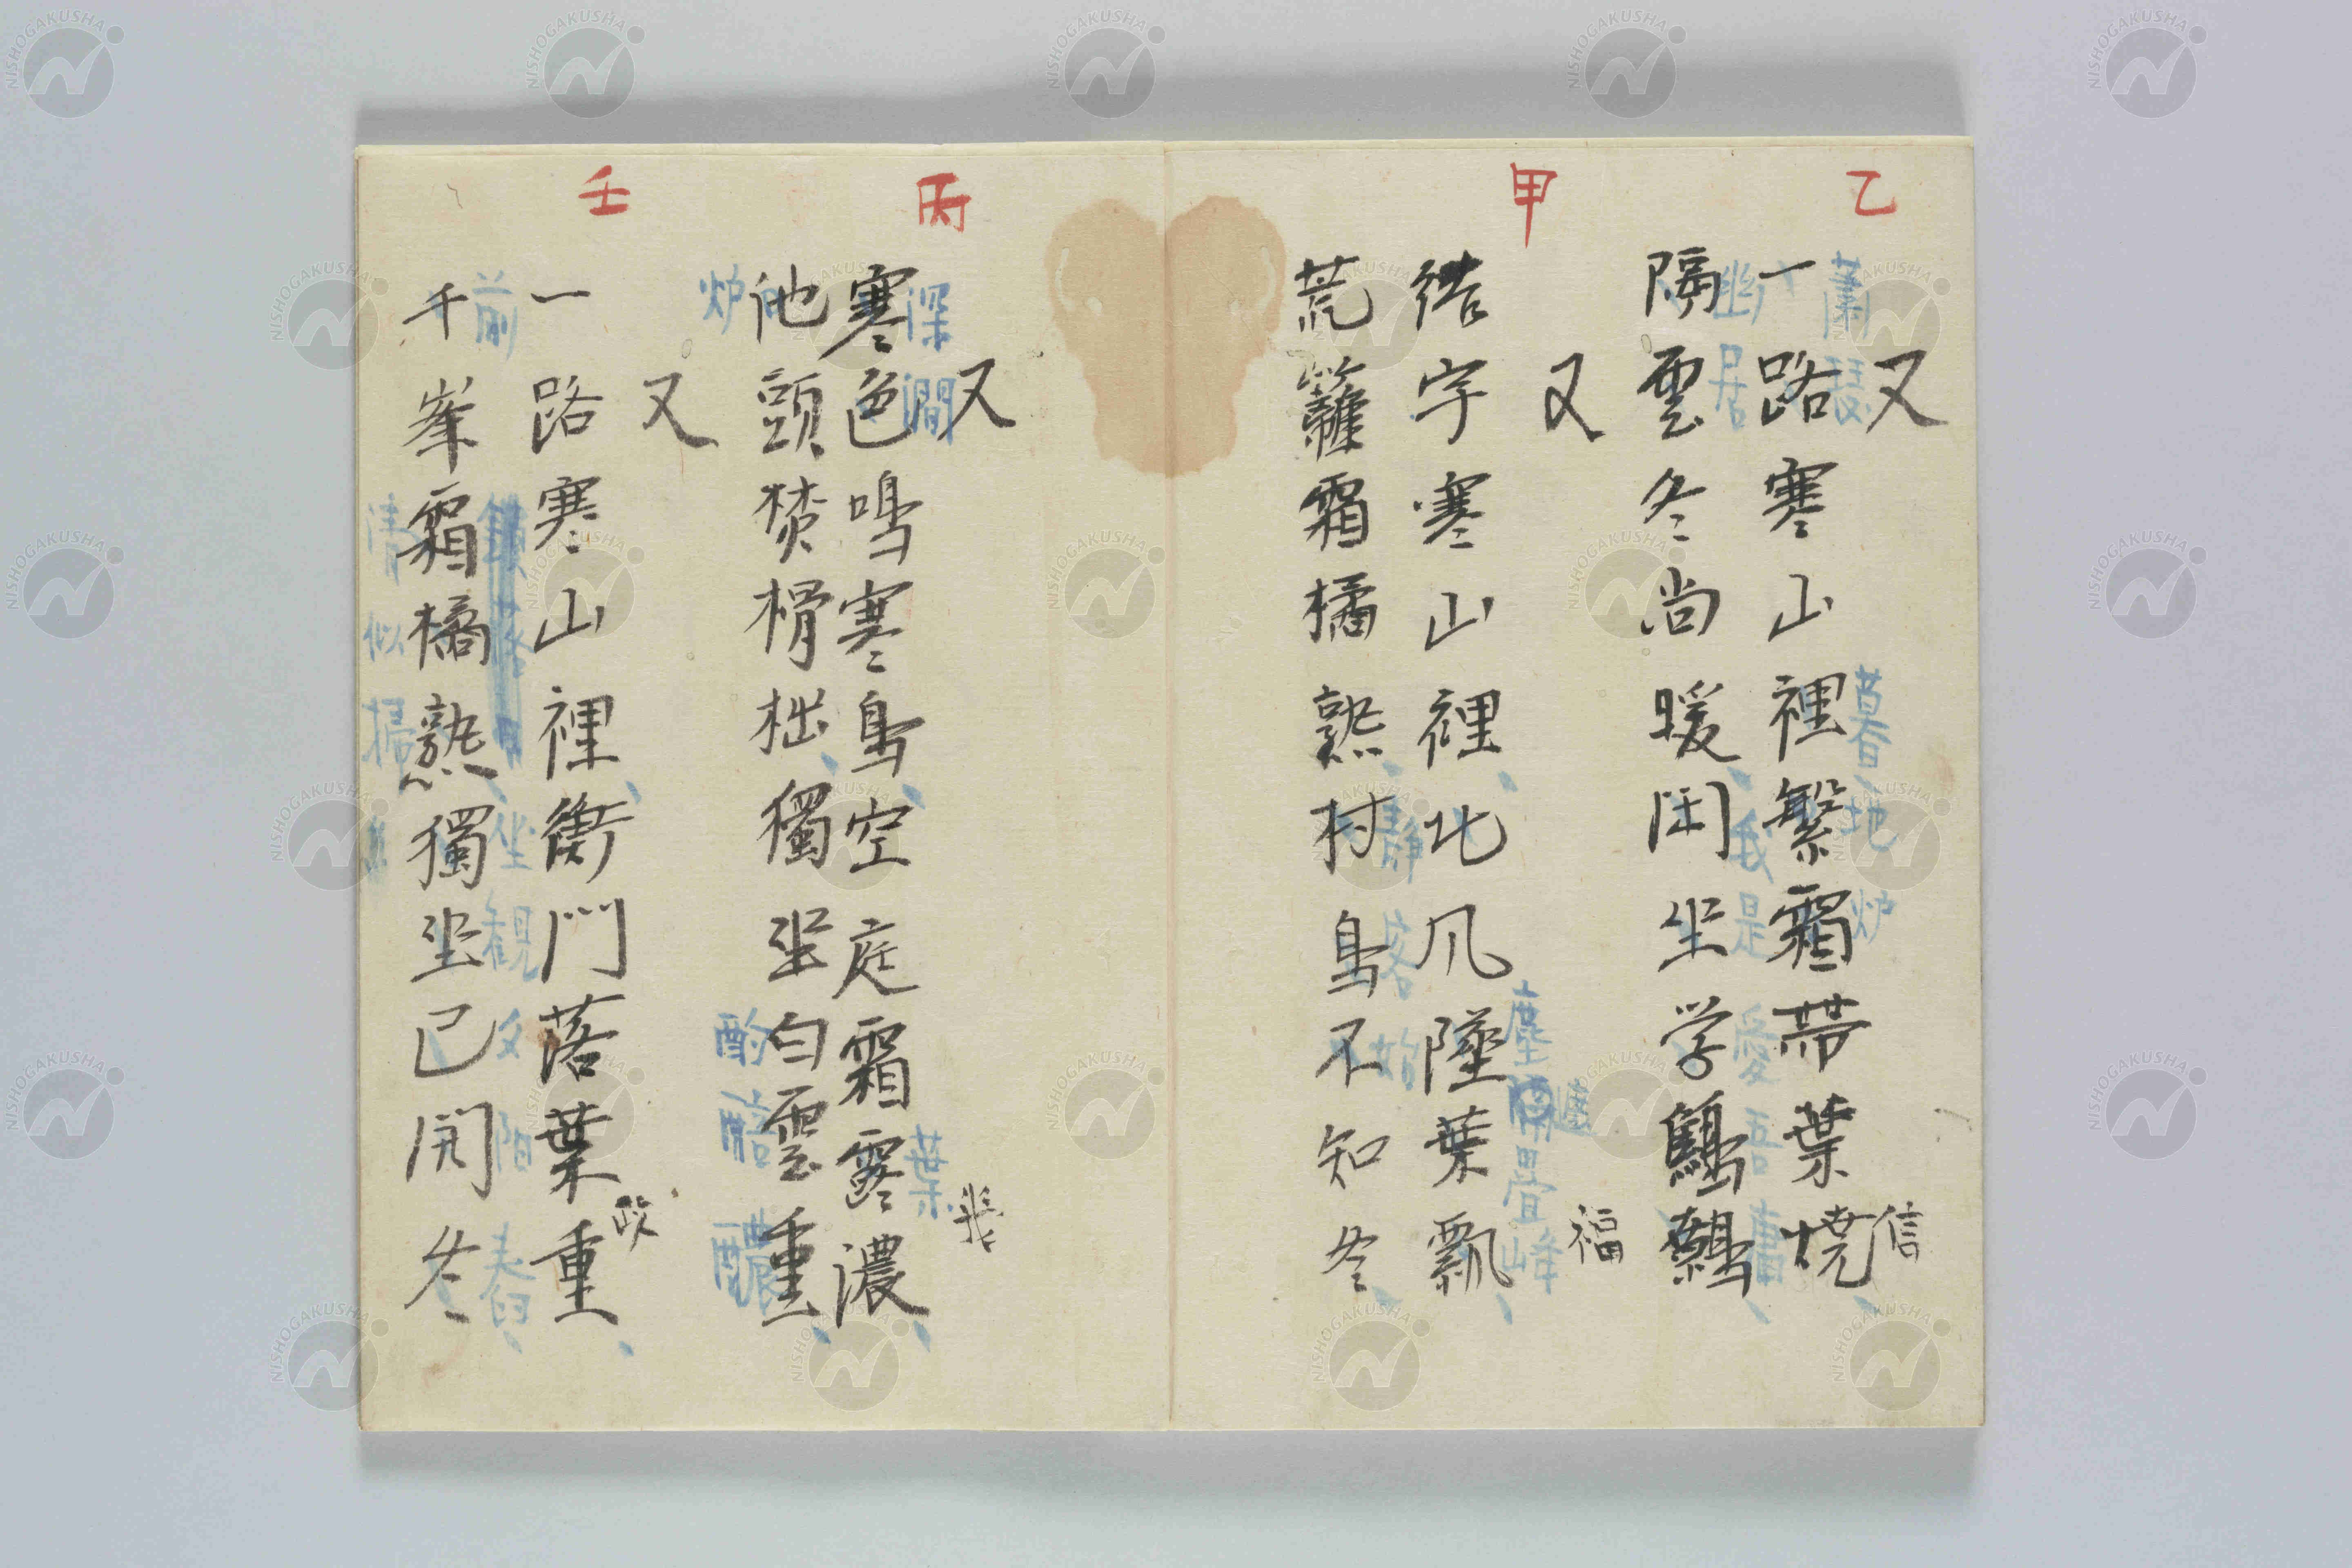 乙
又
蕭瑟
暮地炉
信
一路寒山裡繫霜帯葉焼
幽居
我是愛吾廬
隔雲冬尚暖閑坐学鷦鷯
甲
又
福
塵 畳峰
結宇寒山裡北风墜葉飄
静 客始
荒籬霜橘熟村鳥不知冬
丙
又
深澗
葉
寒色鳴寒鳥空庭霜露濃
池頭焚榾柮獨坐白雲重
炉
酌醅醲
壬
又
政
一路寒山裡衡門落葉重
前
坐観夕陽舂
千峯霜橘熟獨坐已閉冬
清似掃
NISHOGAKUSHA